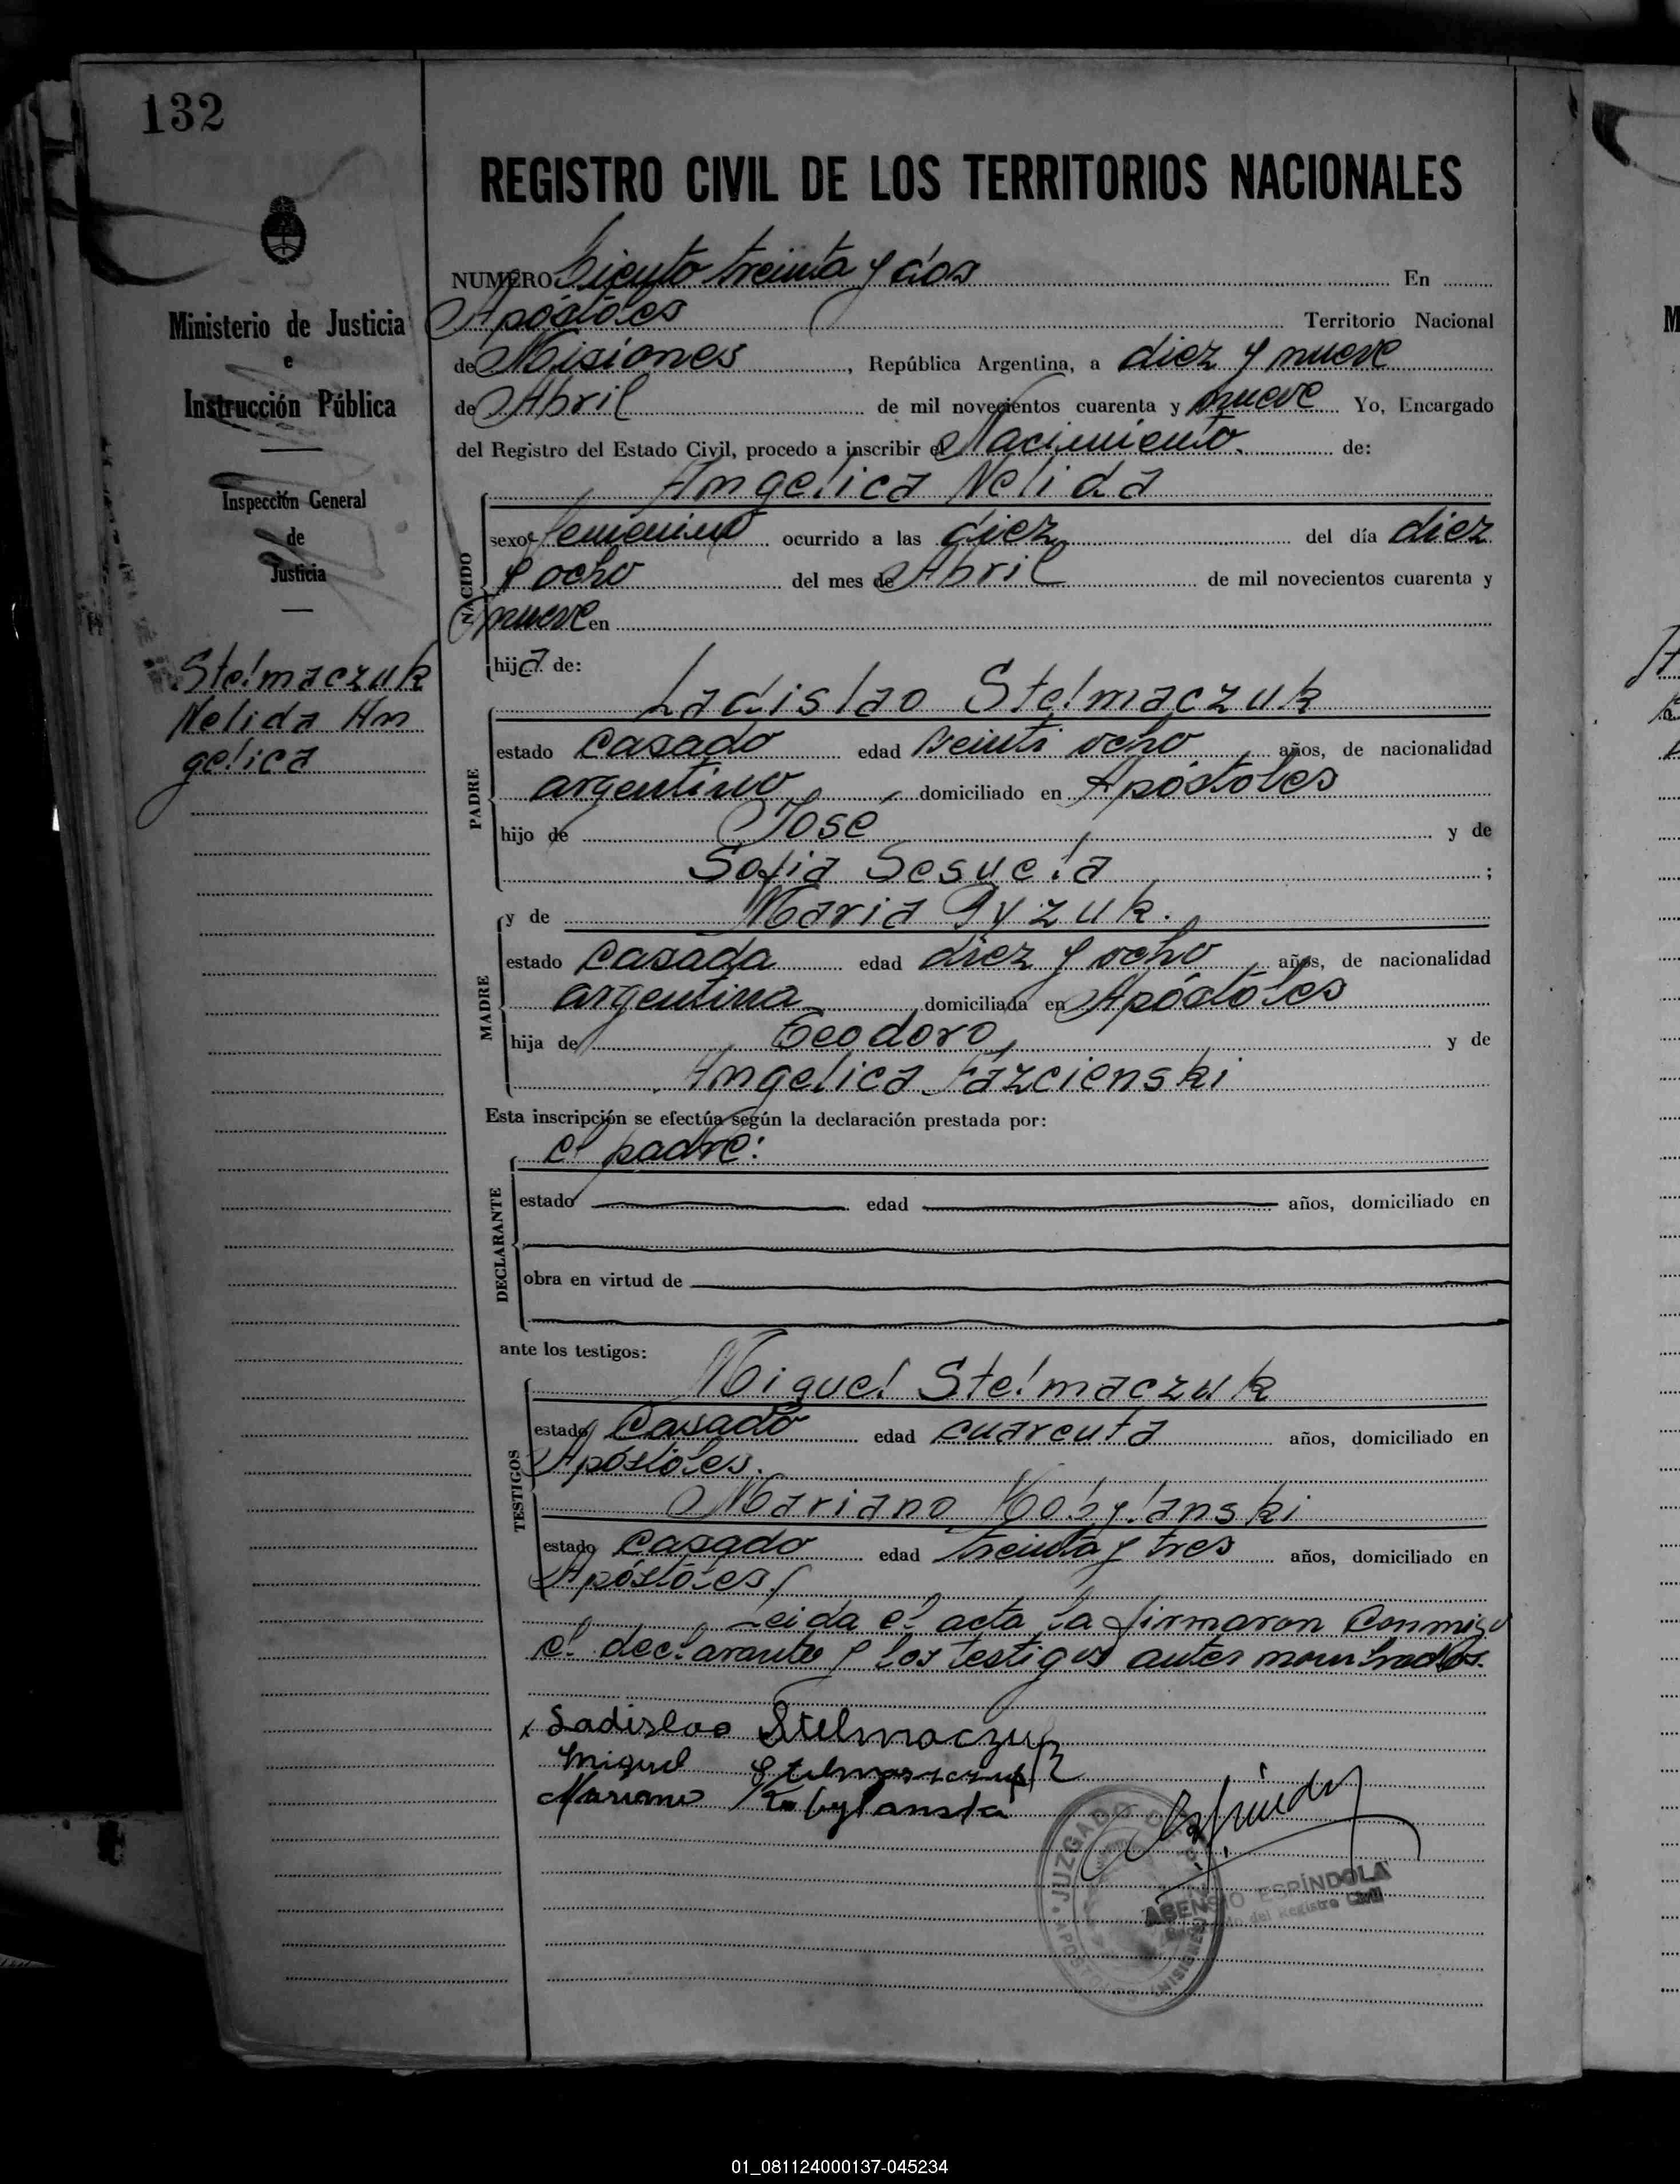 132
REGISTRO CIVIL DE LOS TERRITORIOS NACIONALES
Ministerio de Justicia
e
Instrucción Pública
Inspección General
de
Justicia
Stelmaczuk
Nelida An
gelica
NUMERO Ciento treinta y dos En
Apóstoles Territorio Nacional
de Misiones, República Argentina, a diez y nueve
de Abril de mil novecientos cuarenta y nueve Yo, Encargado
del Registro del Estado Civil, procedo a inscribir el Nacimiento. de:
Angelica Nelida
NACIDO
sexo femenino ocurrido a las diez del día diez
y ocho del mes de Abril de mil novecientos cuarenta y
nueve en
hija de:
Ladislao Stelmaczuk
PADRE
estado casado edad veinti ocho años, de nacionalidad
argentino domiciliado en Apóstoles
hijo de Jose y de
Sofia ;
y de Maria
MADRE
estado casada edad diez y ocho años, de nacionalidad
argentina domiciliada en Apóstoles
hija de Teodoro y de
Angelica
Esta inscripción se efectúa según la declaración prestada por:
el padre:
DECLARANTE
estado edad años, domiciliado en
obra en virtud de
ante los testigos:
Miguel Stelmaczuk
TESTIGOS
estado Casado edad cuarenta años, domiciliado en
Apóstoles.
Mariano Kobylanski
estado Casado edad treinta y tres años, domiciliado en
Apóstoles
Leida el acta la firmaron conmigo
el declarante y los testigos antes nombrados.
Ladislao Stelmaczuk
Miguel Stelmaszczuk
Mariano Kobylanski
JUZGADO
ASENSIO ESPÍNDOLA
Encargado del Registro Civil
01_081124000137-045234